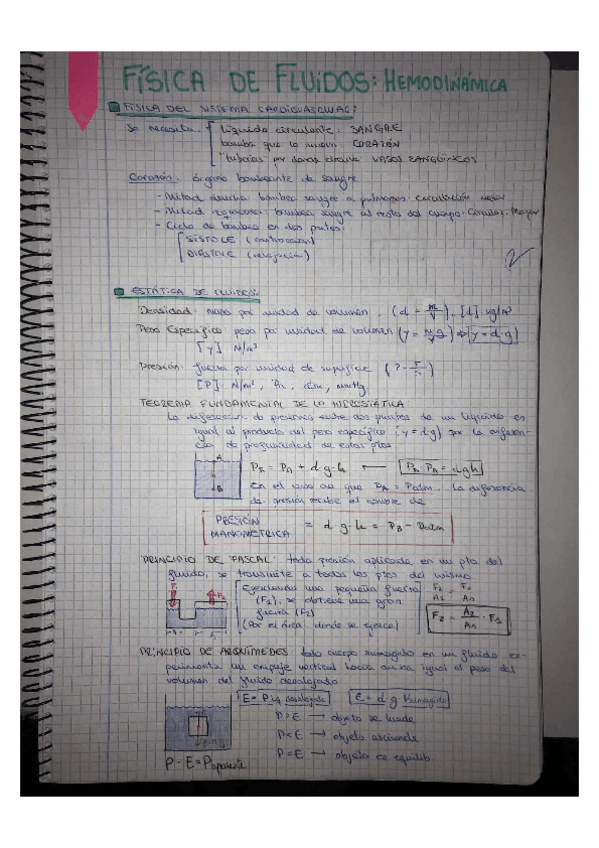 FÍSICA DE FLUIDOS: HEMODINÁMICA
FÍSICA DEL SISTEMA CARDIOVASCULAR:
Se necesita: Líquido circulante: SANGRE
bomba que lo mueva CORAZÓN
"tuberías" por donde circula VASOS SANGUÍNEOS
Corazón: órgano bombeante de sangre
- Mitad derecha bombea sangre a pulmones. Circulación menor
- Mitad izquierda: bombea sangre al resto del cuerpo. Circulac. Mayor
- Ciclo de bombeo en dos partes:
SÍSTOLE (contracción)
DIÁSTOLE (relajación)
ESTÁTICA DE FLUIDOS:
Densidad: masa por unidad de volumen. (d = m/V). [d]: kg/m³
Peso Específico peso por unidad de volumen (γ = m·g/V) ⇒ γ = d·g
[γ] N/m³
Presión: fuerza por unidad de superficie (P = F/S)
[P]: N/m², Pa, atm, mmHg.
TEOREMA FUNDAMENTAL DE LA HIDROSTÁTICA:
La diferencia de presiones entre dos puntos de un líquido es
igual al producto del peso específico (γ = d·g) por la diferen-
cia de profundidad de estos ptos
A
B
P_B = P_A + d·g·h ← P_B - P_A = dgh
En el caso de que P_A = P_atm. La diferencia
de presión recibe el nombre de
PRESIÓN MANOMÉTRICA = d·g·h = P_B - P_atm
PRINCIPIO DE PASCAL: toda presión aplicada en un pto del
fluido, se transmite a todos los ptos del mismo
Ejerciendo una pequeña fuerza
(F₁), se obtiene una gran
fuerza (F₂)
(Por el área donde se ejerce)
F₂/A₂ = F₁/A₁
F₂ = A₂/A₁ · F₁
PRINCIPIO DE ARQUÍMEDES: todo cuerpo sumergido en un fluido ex-
perimenta un empuje vertical hacia arriba igual al peso del
volumen del fluido desalojado
E = P liq desalojado
E = d·g·V sumergido
P > E → objeto se hunde
P < E → objeto asciende
P = E → objeto en equilib.
P - E = P aparente